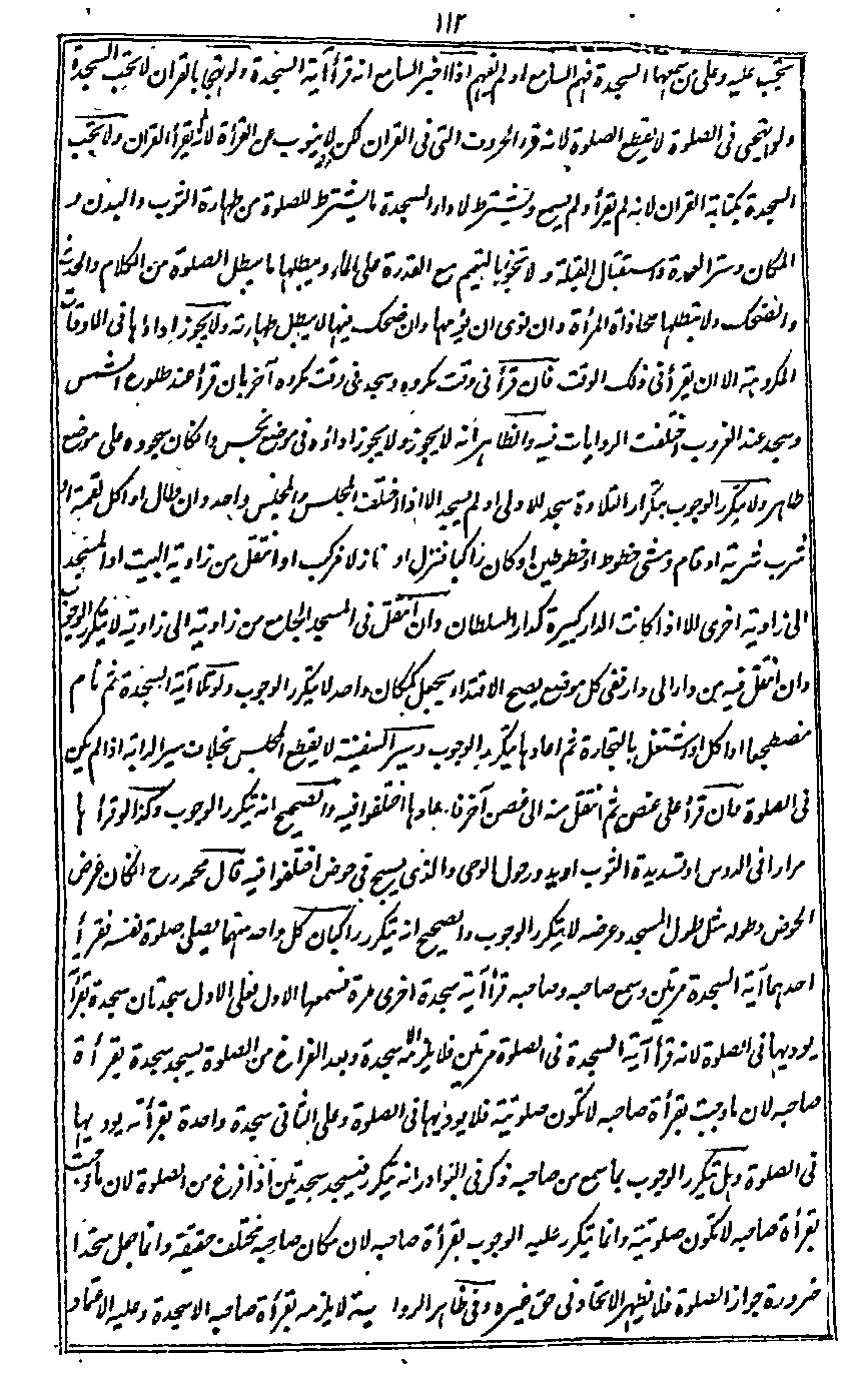 ١١٢
تجب عليه وعلى من سمعها السجدة فهم السامع او لم يفهم اذا اخبر السامع انه قرأ آية السجدة ولو تهجى بالقران لا تجب السجدة
ولو تهجى فى الصلوة لا يقطع الصلوة لانه قرء الحروف التى فى القران لكن لا ينوب عن القرأة لانه لم يقرأ القران ولا تجب
السجدة بكتابة القران لانه لم يقرأ ولم يسمع ويشترط لاداء السجدة ما يشترط للصلوة من طهارة الثوب والبدن و
المكان وستر العورة واستقبال القبلة ولا تجوز بالتيمم مع القدرة على الماء ويبطلها ما يبطل الصلوة من الكلام والحدث
والضحك ولا تبطلها محاذاة المرأة وان نوى ان يؤمها وان ضحك فيها لا يبطل طهارته ولا يجوز اداؤها فى الاوقات
المكروهة الا ان يقرأ فى ذلك الوقت فان قرأ فى وقت مكروه وسجد فى وقت مكروه آخر بان قرأ عند طلوع الشمس
وسجد عند الغروب اختلفت الروايات فيه والظاهر انه لا يجوز ولا يجوز اداؤه فى موضع نجس وان كان سجوده على موضع
طاهر ولا يتكرر الوجوب بتكرار التلاوة سجد للاولى او لم يسجد الا اذا اختلف المجلس والمجلس واحد وان طال او اكل لقمة او
شرب شربة او قام ومشى خطوة او خطوتين او كان راكبا فنزل او نازلا فركب او انتقل من زاوية البيت او المسجد
الى زاوية اخرى الا اذا كانت الدار كبيرة كدار السلطان وان انتقل فى المسجد الجامع من زاوية الى زاوية لا يتكرر الوجوب
وان انتقل فيه من دار الى دار ففى كل موضع يصح الاقتداء يجعل كمكان واحد لا يتكرر الوجوب ولو تلا آية السجدة ثم نام
مضطجعا او اكل او اشتغل بالتجارة ثم اعادها يتكرر الوجوب وسير السفينة لا يقطع المجلس بخلاف سير الدابة اذا لم يكن
فى الصلوة فان قرأ على غصن ثم انتقل منه الى غصن آخر فاعادها اختلفوا فيه والصحيح انه يتكرر الوجوب وكذا لو قرأ ها
مرارا فى الدوس او تسدية الثوب او يدور حول الرحى والذى يسبح فى حوض اختلفوا فيه قال محمد رح ان كان عرض
الحوض وطوله مثل طول المسجد وعرضه لا يتكرر الوجوب والصحيح انه يتكرر راكبان كل واحد منهما يصلى صلوة نفسه فقرأ
احدهما آية السجدة مرتين وسمع صاحبه وصاحبه قرأ آية سجدة اخرى مرة فسمعها الاول فعلى الاول سجدتان سجدة بقرأته
يوديها فى الصلوة لانه قرأ آية السجدة فى الصلوة مرتين فلا يلزمه الا سجدة وبعد الفراغ من الصلوة يسجد سجدة بقرأة
صاحبه لان ما وجبت بقرأة صاحبه لا تكون صلوتية فلا يوديها فى الصلوة وعلى الثانى سجدة واحدة بقرأته يوديها
فى الصلوة وهل يتكرر الوجوب بما سمع من صاحبه ذكر فى النوادر انه يتكرر فيسجد سجدتين اذا فرغ من الصلوة لان ما وجبت
بقرأة صاحبه لا تكون صلوتية وانما يتكرر عليه الوجوب بقرأة صاحبه لان مكان صاحبه مختلف حقيقة وانما جعل متحدا
ضرورة جواز الصلوة فلا يظهر الاتحاد فى حق غيره وفى ظاهر الرواية لا يلزمه بقرأة صاحبه الا سجدة وعليه الاعتماد